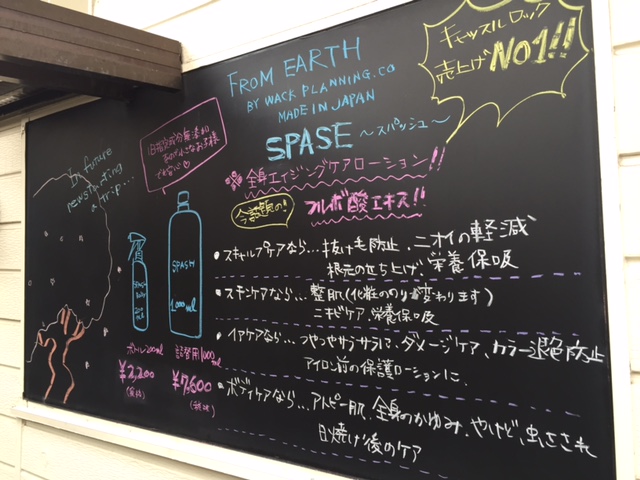 FROM EARTH
BY WACK PLANNING.CO
MADE IN JAPAN
SPASE ～スパッシュ～
キャッスルロック
売上げNO1!!
全身エイジングケアローション!!
今話題の!
フルボ酸エキス!!
旧指定成分無添加
ので小さなお子様
でも安心
In future
newstanding
a trip...
SPASH
1000ml
ボトル200ml
¥2,200
(税抜)
詰替用1000ml
¥7,600
(税抜)
・スキャルプケアなら…抜け毛防止、ニオイの軽減
根元のせち上げ、栄養保吸
・スキンケアなら…整肌(化粧ののりが変わります)
ニキビケア、栄養保吸
・ヘアケアなら…つやつやサラサラに、ダメージケア、カラー退色防止
アイロン前の保護ローションに、
・ボディケアなら…アトピー肌、全身のかゆみ、やけど、虫さされ
日焼け後のケア